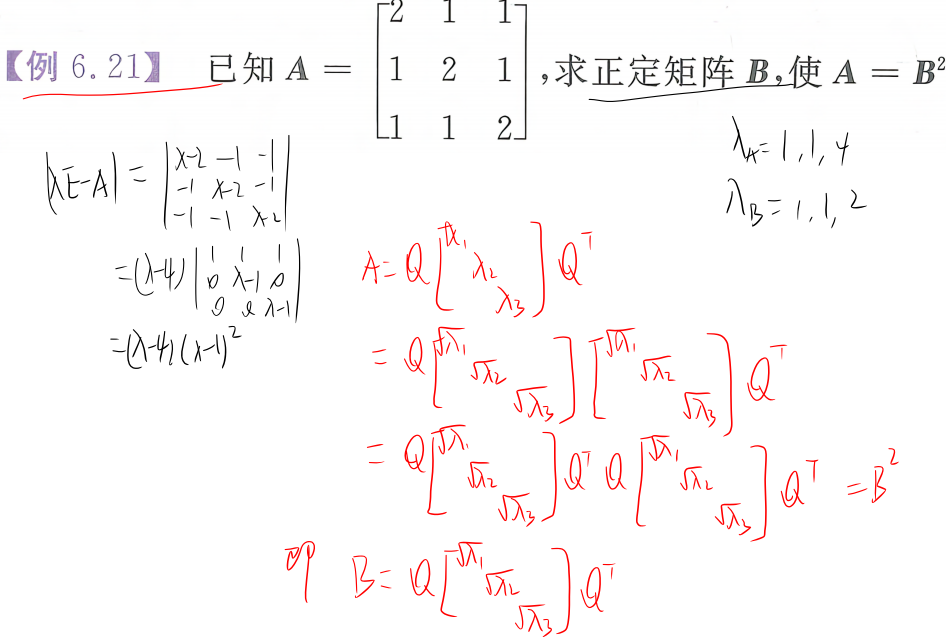 【例 6.21】 已知 A = [2 1 1; 1 2 1; 1 1 2] ,求正定矩阵 B,使 A = B²
λ_A = 1, 1, 4
λ_B = 1, 1, 2
|λE-A| = |λ-2 -1 -1; -1 λ-2 -1; -1 -1 λ-2|
= (λ-4) |1 1 1; 0 λ-1 0; 0 0 λ-1|
= (λ-4)(λ-1)²
A = Q [λ₁ λ₂ λ₃] Qᵀ
= Q [√λ₁ √λ₂ √λ₃] [√λ₁ √λ₂ √λ₃] Qᵀ
= Q [√λ₁ √λ₂ √λ₃] Qᵀ Q [√λ₁ √λ₂ √λ₃] Qᵀ = B²
即 B = Q [√λ₁ √λ₂ √λ₃] Qᵀ